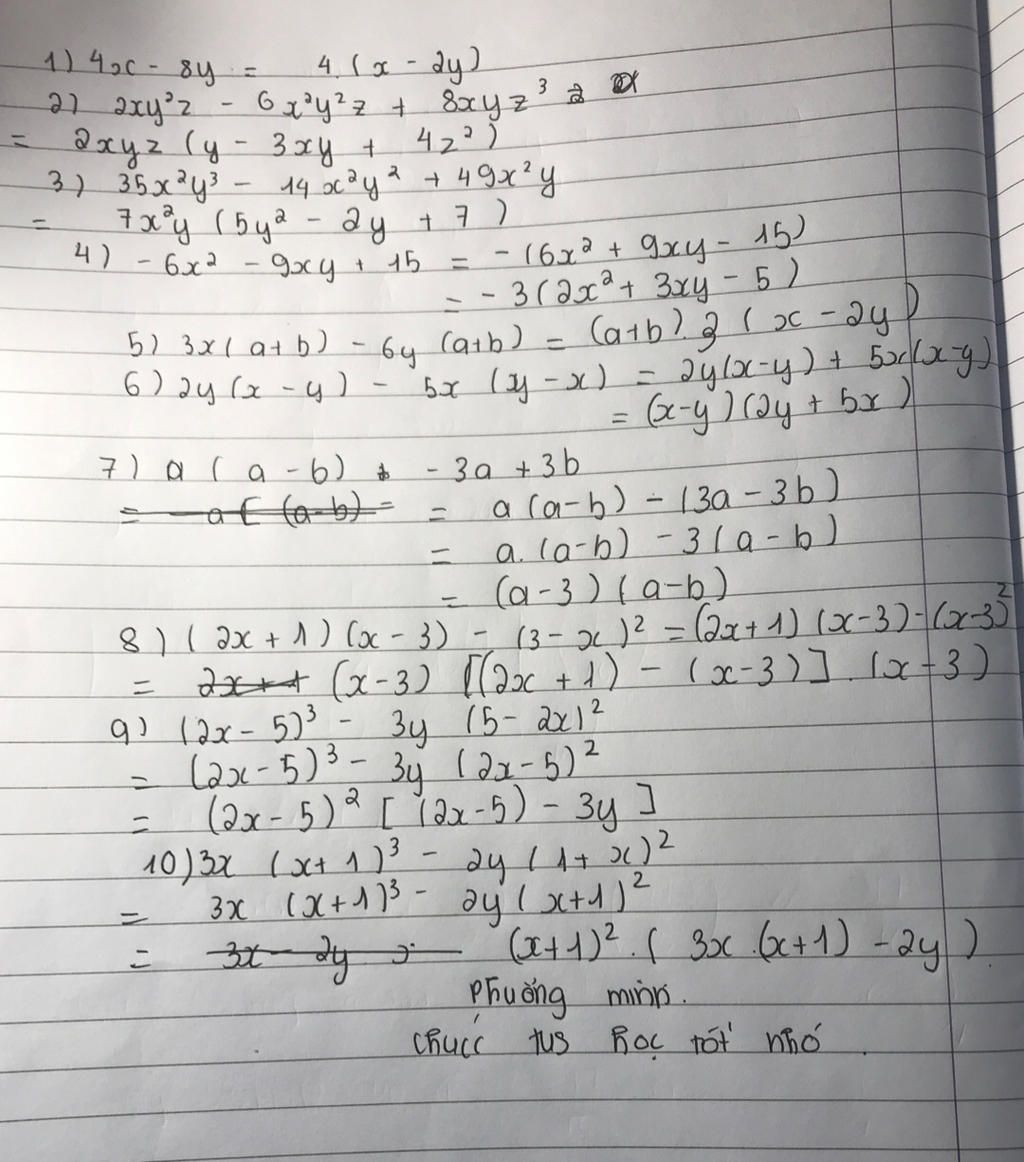 1) 4x - 8y = 4. (x - 2y)
2) 2xy²z - 6x²y²z + 8xyz³ =
= 2xyz (y - 3xy + 4z²)
3) 35x²y³ - 14x²y² + 49x²y
= 7x²y (5y² - 2y + 7)
4) -6x² - 9xy + 15 = -(6x² + 9xy - 15)
= -3(2x² + 3xy - 5)
5) 3x(a+b) - 6y (a+b) = (a+b).3 (x - 2y)
6) 2y(x - y) - 5x (y - x) = 2y(x-y) + 5x(x-y)
= (x-y)(2y + 5x)
7) a (a - b) - 3a + 3b
= a ( (a-b) = = a(a-b) - (3a - 3b)
= a.(a-b) - 3(a - b)
= (a-3)(a-b)
8) (2x+1)(x-3) - (3-x)² = (2x+1)(x-3)-(x-3)²
= 2x+1 (x-3) [(2x+1) - (x-3)].(x-3)
9) (2x-5)³ - 3y (5-2x)²
= (2x-5)³ - 3y (2x-5)²
= (2x-5)² [(2x-5) - 3y]
10) 3x (x+1)³ - 2y(1+x)²
= 3x (x+1)³ - 2y(x+1)²
= 3x - 2y (x+1)².( 3x.(x+1) - 2y)
minh.
tus học tốt nhó